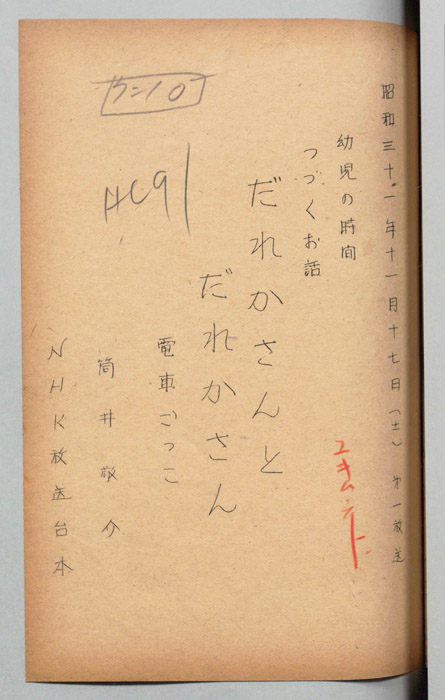 昭和三十一年十一月十七日(土) 第一放送
幼児の時間
つづくお話
だれかさんと
だれかさん
電車ごっこ
筒井敬介
NHK放送台本